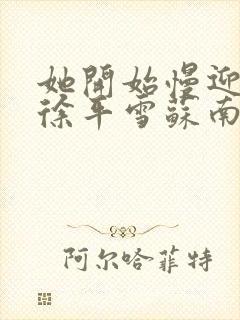 她開始慢迎
徐平雪蘇南
阿尔哈菲特